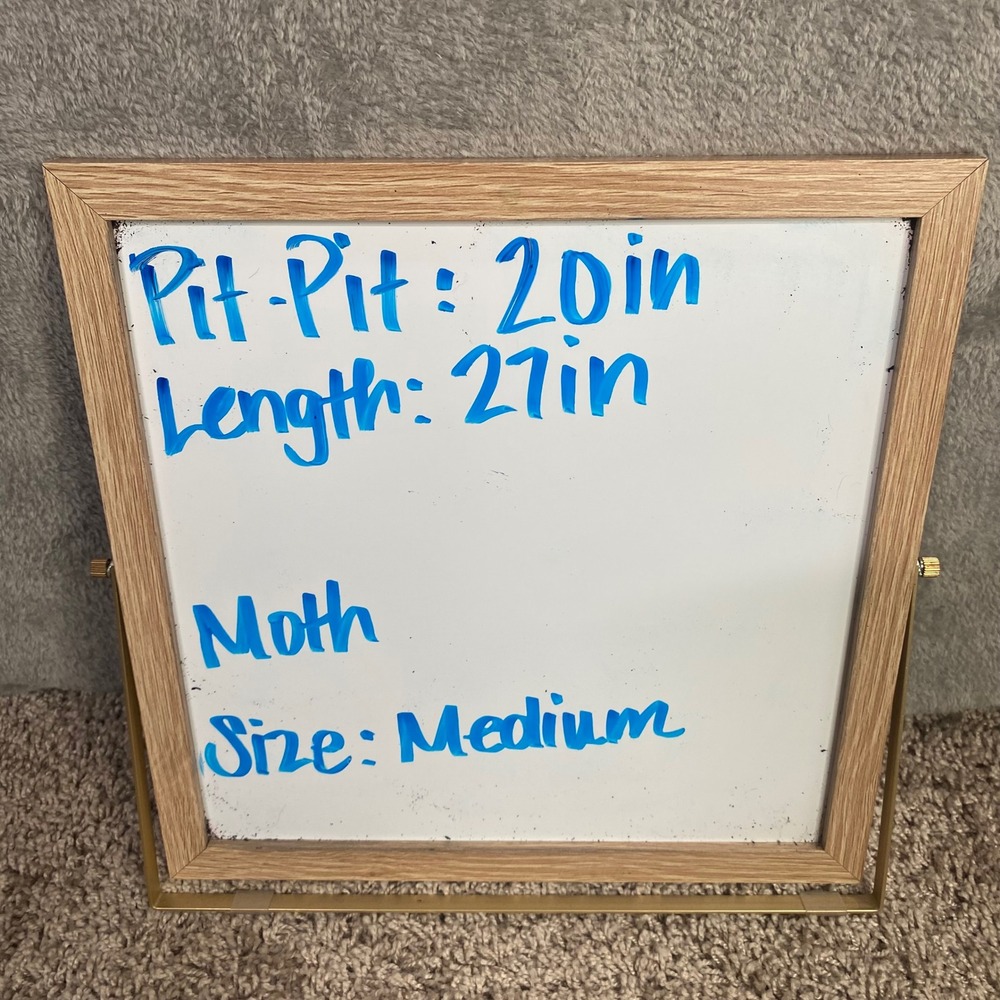 Pit-Pit: 20in
Length: 27in
Moth
Size: Medium